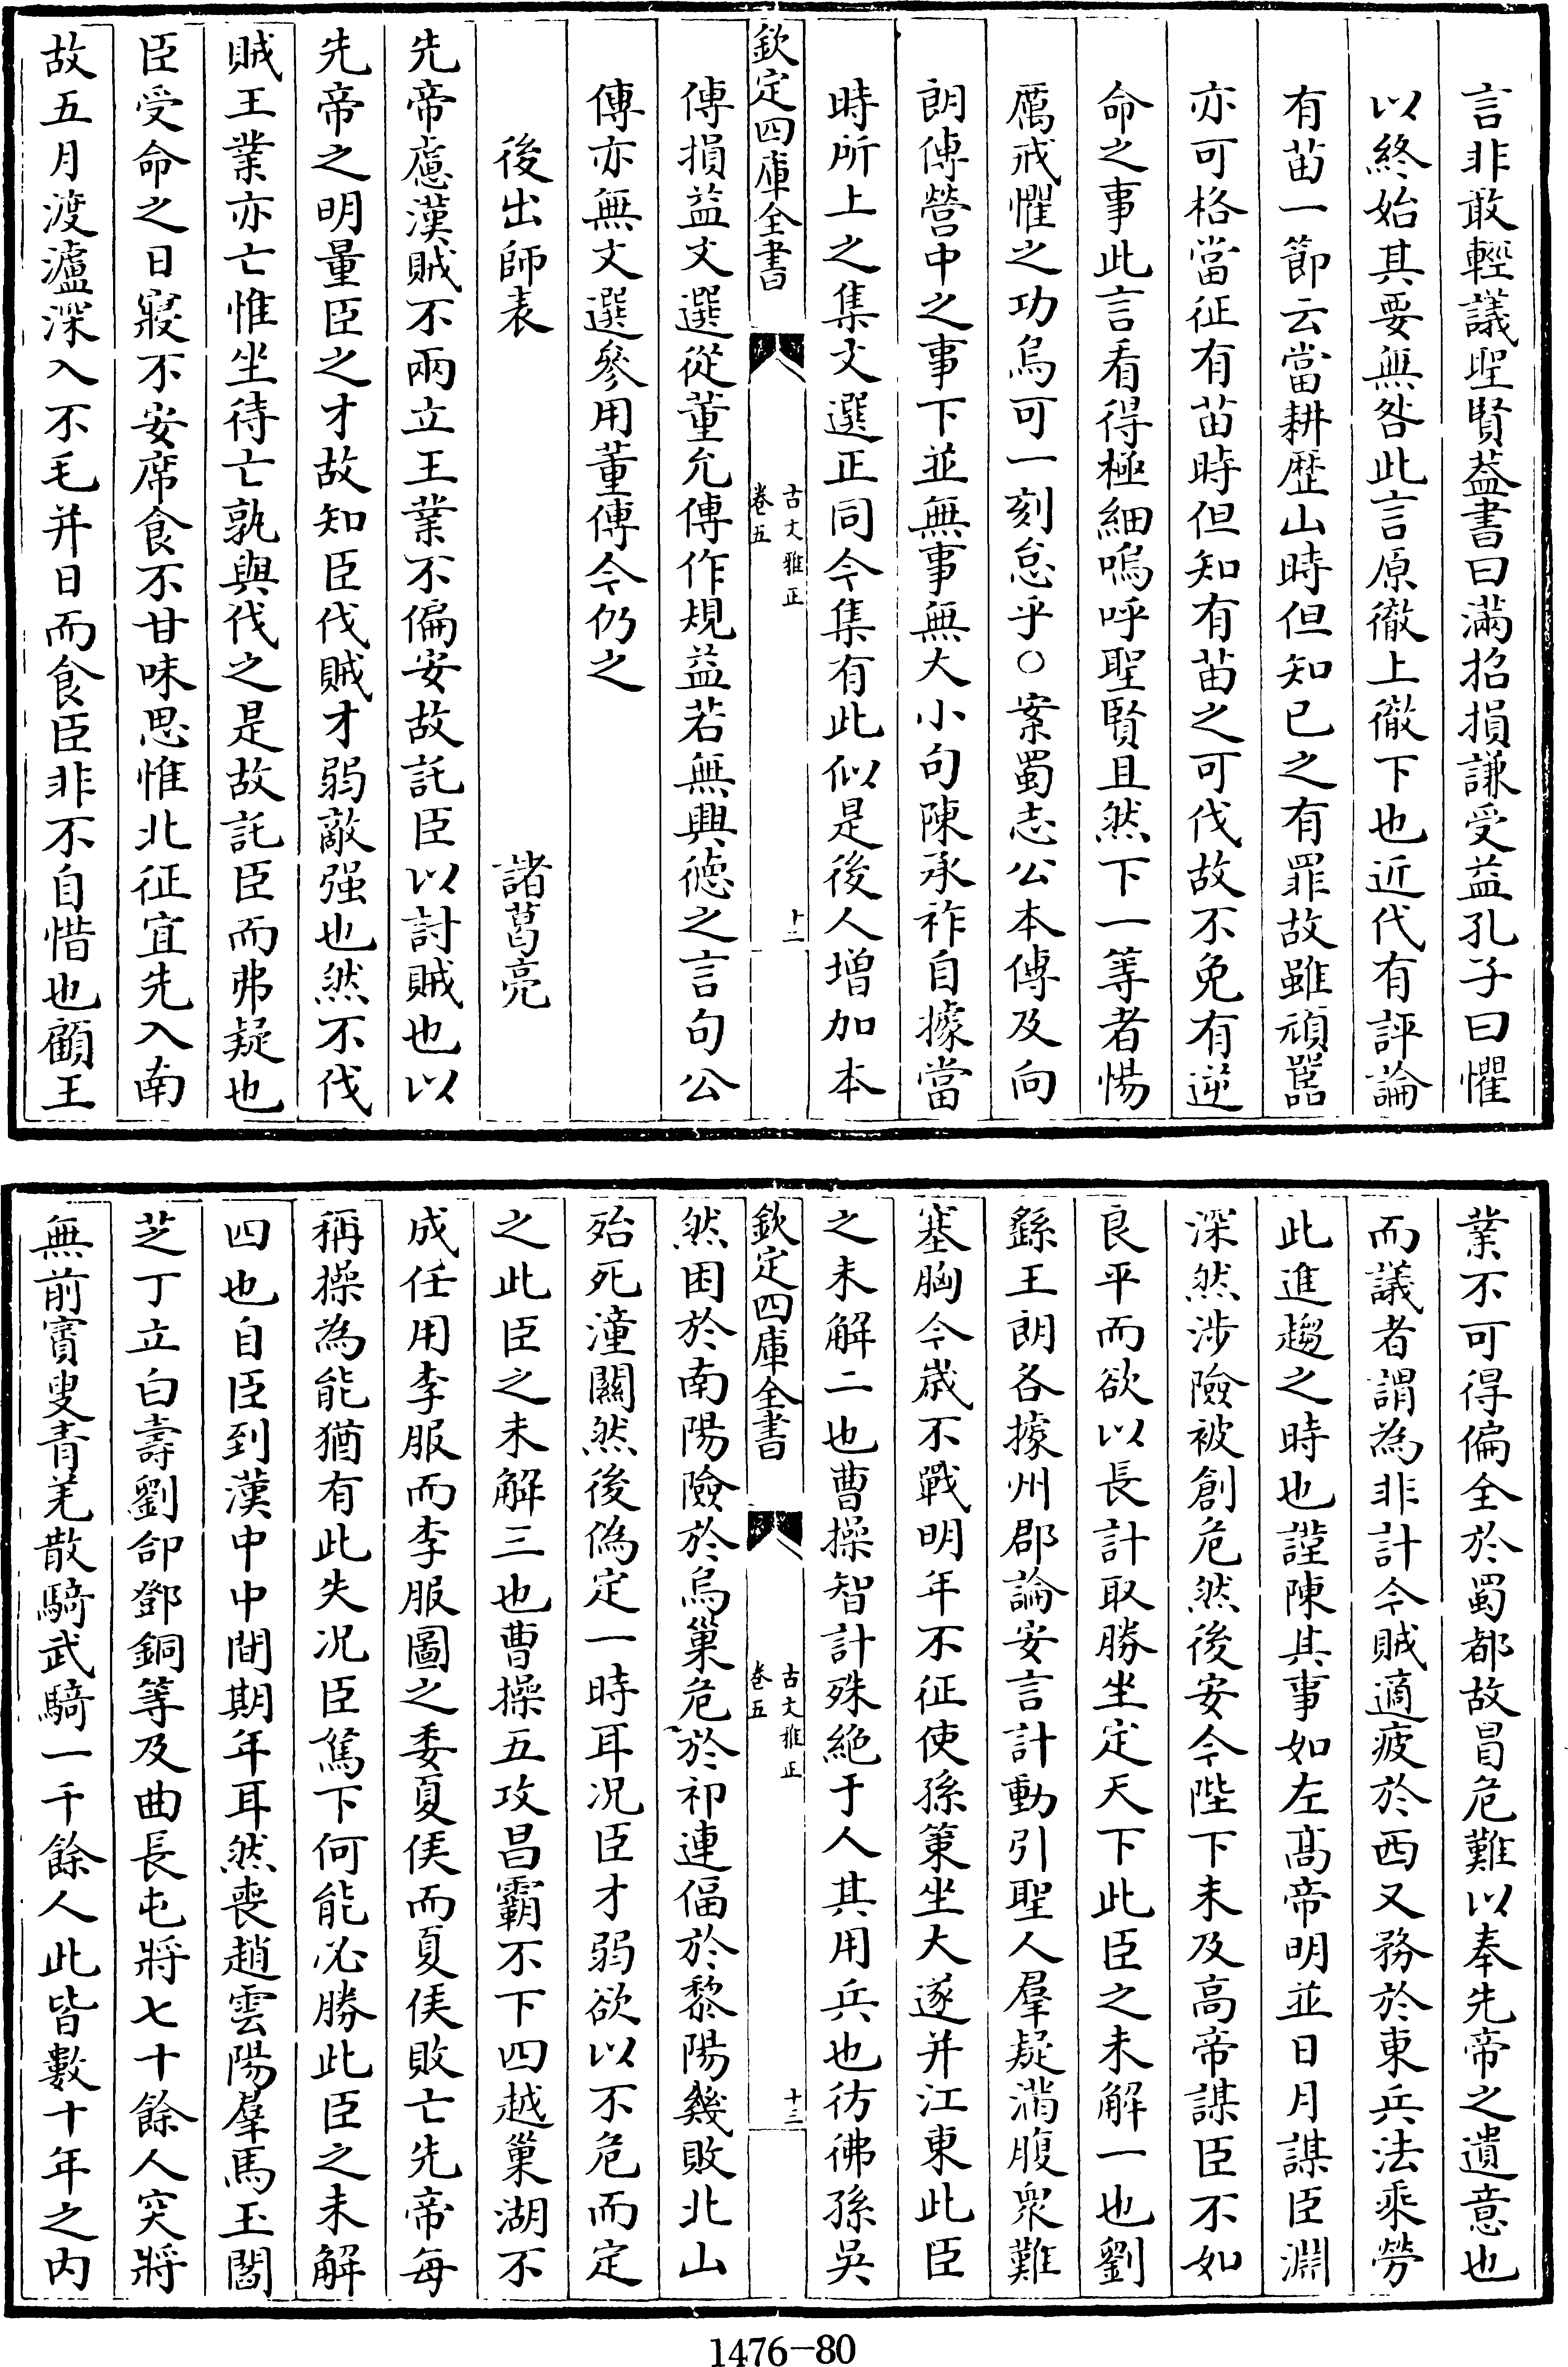 言非敢輕議聖賢葢書曰滿招損謙受益孔子曰懼
以終始其要無咎此言原徹上徹下也近代有評論
有苗一節云當耕歴山時但知已之有罪故雖頑嚚
亦可格當征有苗時但知有苗之可伐故不免有逆
命之事此言看得極細嗚呼聖賢且然下一等者惕
厲戒懼之功烏可一刻怠乎○案蜀志公本傳及向
朗傳營中之事下並無事無大小句陳承祚自據當
時所上之集文選正同今集有此似是後人增加本
欽定四庫全書
古文雅正
卷五
十二
傳損益文選從董允傳作規益若無興徳之言句公
傳亦無文選參用董傳今仍之
後出師表
諸葛亮
先帝慮漢賊不兩立王業不偏安故託臣以討賊也以
先帝之明量臣之才故知臣伐賊才弱敵强也然不伐
賊王業亦亡惟坐待亡孰與伐之是故託臣而弗疑也
臣受命之日寢不安席食不甘味思惟北征宜先入南
故五月渡瀘深入不毛并日而食臣非不自惜也顧王
業不可得偏全於蜀都故冒危難以奉先帝之遺意也
而議者謂為非計今賊適疲於西又務於東兵法乘勞
此進趨之時也謹陳其事如左髙帝明並日月謀臣淵
深然涉險被創危然後安今陛下未及高帝謀臣不如
良平而欲以長計取勝坐定天下此臣之未解一也劉
繇王朗各據州郡論安言計動引聖人羣疑滿腹衆難
塞胸今歲不戰明年不征使孫策坐大遂并江東此臣
之未解二也曹操智計殊絶于人其用兵也彷彿孫吳
欽定四庫全書
古文雅正
卷五
十三
然困於南陽險於烏巢危於祁連偪於黎陽幾敗北山
殆死潼關然後偽定一時耳况臣才弱欲以不危而定
之此臣之未解三也曹操五攻昌霸不下四越巢湖不
成任用李服而李服圖之委夏侯而夏侯敗亡先帝每
稱操為能猶有此失况臣駑下何能必勝此臣之未解
四也自臣到漢中中間期年耳然喪趙雲陽羣馬玉閻
芝丁立白壽劉郃鄧銅等及曲長屯將七十餘人突將
無前賨叟青羌散騎武騎一千餘人此皆數十年之内
1476-80